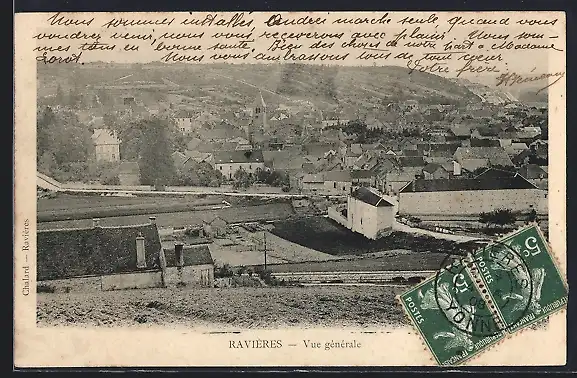 Nous sommes installés Andrés marche seule, quand vous
voudrez venir, nous vous recevrons avec plaisir. Nous som-
mes tous en bonne santé. Bien des choses de notre part à Madame
Nous vous embrassons tous de tout cœur
Votre frère
Chalard — Ravières
RAVIÈRES — Vue générale
5c
POSTES
YONNE